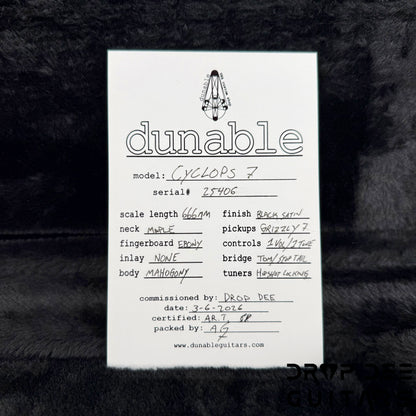 dunable
dunable
model: CYCLOPS 7
serial# 25406
scale length 666mm
neck MAPLE
fingerboard EBONY
inlay NONE
body MAHOGONY
finish BLACK SATIN
pickups GRIZZLY 7
controls 1 VOL/1 TONE
bridge TOM/STOP TAIL
tuners HIPSHOT LOCKING
commissioned by: DROP DEE
date: 3-6-2026
certified: AR.T,
packed by: A.G
www.dunableguitars.com
DROP DEE
GUITARS